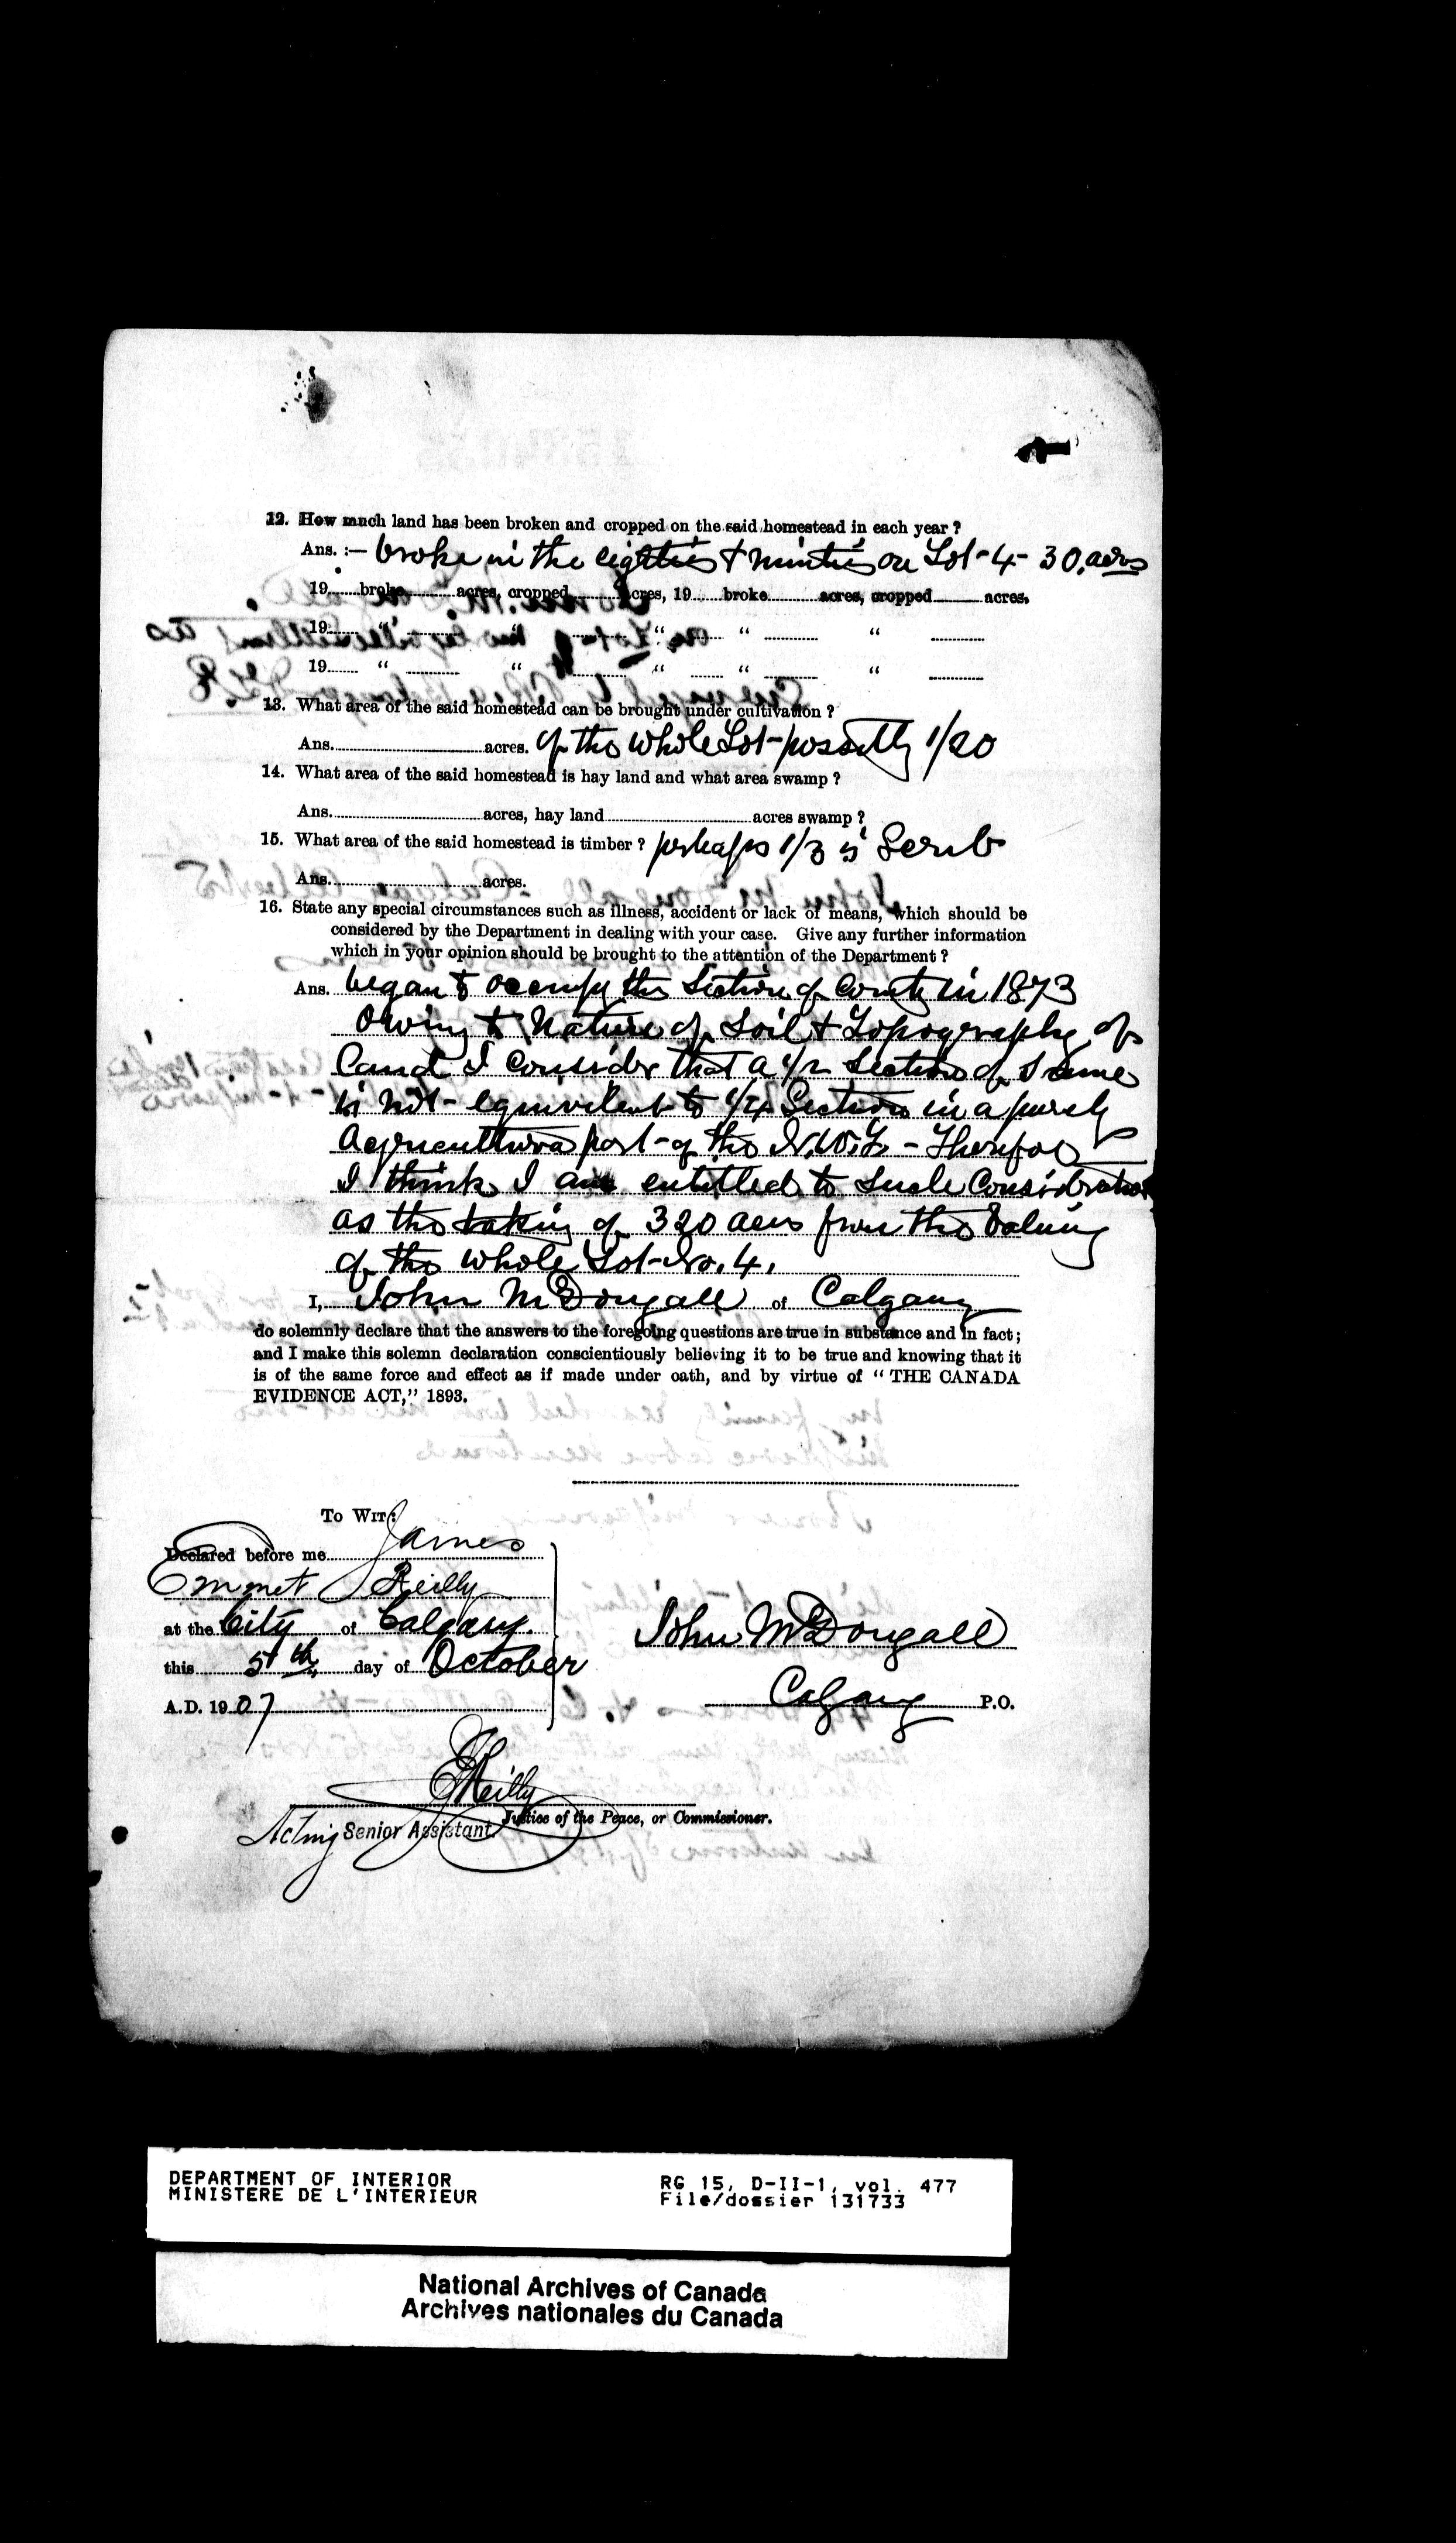 12. How much land has been broken and cropped on the said homestead in each year ?
Ans. :— broke in the eighties & nineties on Lot - 4 - 30. acres
19 broke acres, cropped acres, 19 broke acres, cropped acres.
19 " " " " "
19 " " " " "
13. What area of the said homestead can be brought under cultivation ?
Ans. acres. of the whole Lot - possibly 1/20
14. What area of the said homestead is hay land and what area swamp ?
Ans. acres, hay land acres swamp ?
15. What area of the said homestead is timber ? perhaps 1/3 is Scrub
Ans. acres.
16. State any special circumstances such as illness, accident or lack of means, which should be
considered by the Department in dealing with your case. Give any further information
which in your opinion should be brought to the attention of the Department ?
Ans. began to occupy this Section of County in 1873
Owing to Nature of Soil & Topography of
Land I consider that a 1/2 Section of Same
is not - equivalent to 1/4 Section in a purely
Agricultural part - of the N.W.T. - Therefore
I think I am entitled to such Consideration
as the taking of 320 acres from the valuing
of the whole Lot - No. 4.
I, John McDougall of Calgary
do solemnly declare that the answers to the foregoing questions are true in substance and in fact ;
and I make this solemn declaration conscientiously believing it to be true and knowing that it
is of the same force and effect as if made under oath, and by virtue of " THE CANADA
EVIDENCE ACT," 1893.
To Wit:
Declared before me James
Emmet Reilly
at the City of Calgary.
this 5th day of October
A.D. 1907
John McDougall
Calgary P.O.
Reilly
Justice of the Peace, or Commissioner.
Acting Senior Assistant.
DEPARTMENT OF INTERIOR
MINISTERE DE L'INTERIEUR
RG 15, D-II-1, vol. 477
File/dossier 131733
National Archives of Canada
Archives nationales du Canada